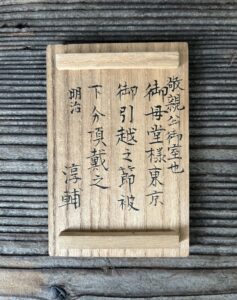 敬親公御室也
御母堂様東京
御引越之節被
下分頂戴之
明治
淳輔